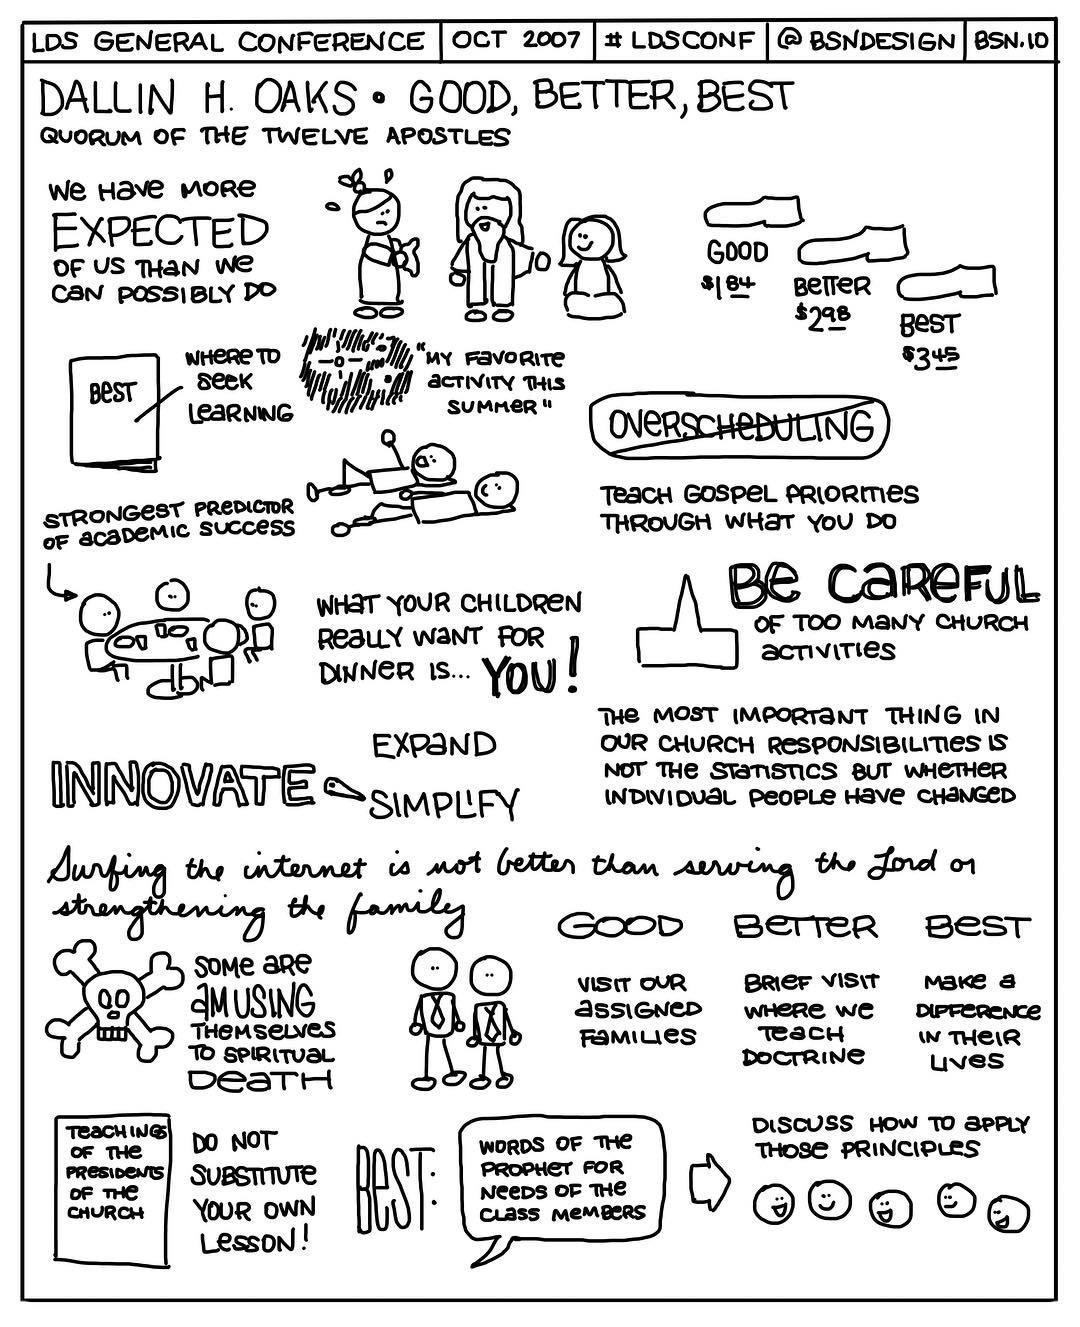 LDS GENERAL CONFERENCE
OCT 2007
# LDSCONF
@BSNDESIGN
BSN.IO
DALLIN H. OAKS • GOOD, BETTER, BEST
QUORUM OF THE TWELVE APOSTLES
WE HAVE MORE
EXPECTED
OF US THAN WE
CAN POSSIBLY DO
GOOD
$1 84
BETTER
$2 98
BEST
$3 45
BEST
WHERE TO
SEEK
LEARNING
"MY FAVORITE
ACTIVITY THIS
SUMMER"
OVERSCHEDULING
TEACH GOSPEL PRIORITIES
THROUGH WHAT YOU DO
STRONGEST PREDICTOR
OF ACADEMIC SUCCESS
WHAT YOUR CHILDREN
REALLY WANT FOR
DINNER IS... YOU!
BE CAREFUL
OF TOO MANY CHURCH
ACTIVITIES
INNOVATE
EXPAND
SIMPLIFY
THE MOST IMPORTANT THING IN
OUR CHURCH RESPONSIBILITIES IS
NOT THE STATISTICS BUT WHETHER
INDIVIDUAL PEOPLE HAVE CHANGED
Surfing the internet is not better than serving the Lord or
strengthening the family
SOME ARE
AMUSING
THEMSELVES
TO SPIRITUAL
DEATH
GOOD
VISIT OUR
ASSIGNED
FAMILIES
BETTER
BRIEF VISIT
WHERE WE
TEACH
DOCTRINE
BEST
MAKE A
DIFFERENCE
IN THEIR
LIVES
TEACHINGS
OF THE
PRESIDENTS
OF THE
CHURCH
DO NOT
SUBSTITUTE
YOUR OWN
LESSON!
BEST:
WORDS OF THE
PROPHET FOR
NEEDS OF THE
CLASS MEMBERS
DISCUSS HOW TO APPLY
THOSE PRINCIPLES